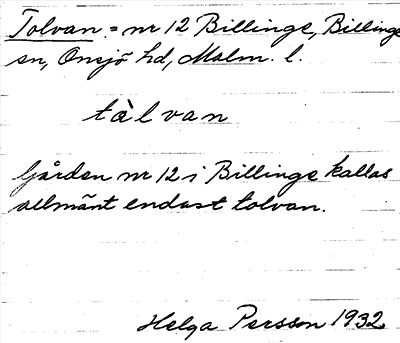 Tolvan = nr 12 Billinge, Billinge
sn, Onsjö hd, Malm. l.
tàlvan
Gården nr 12 i Billinge kallas
allmänt endast tolvan.
Helga Persson 1932.